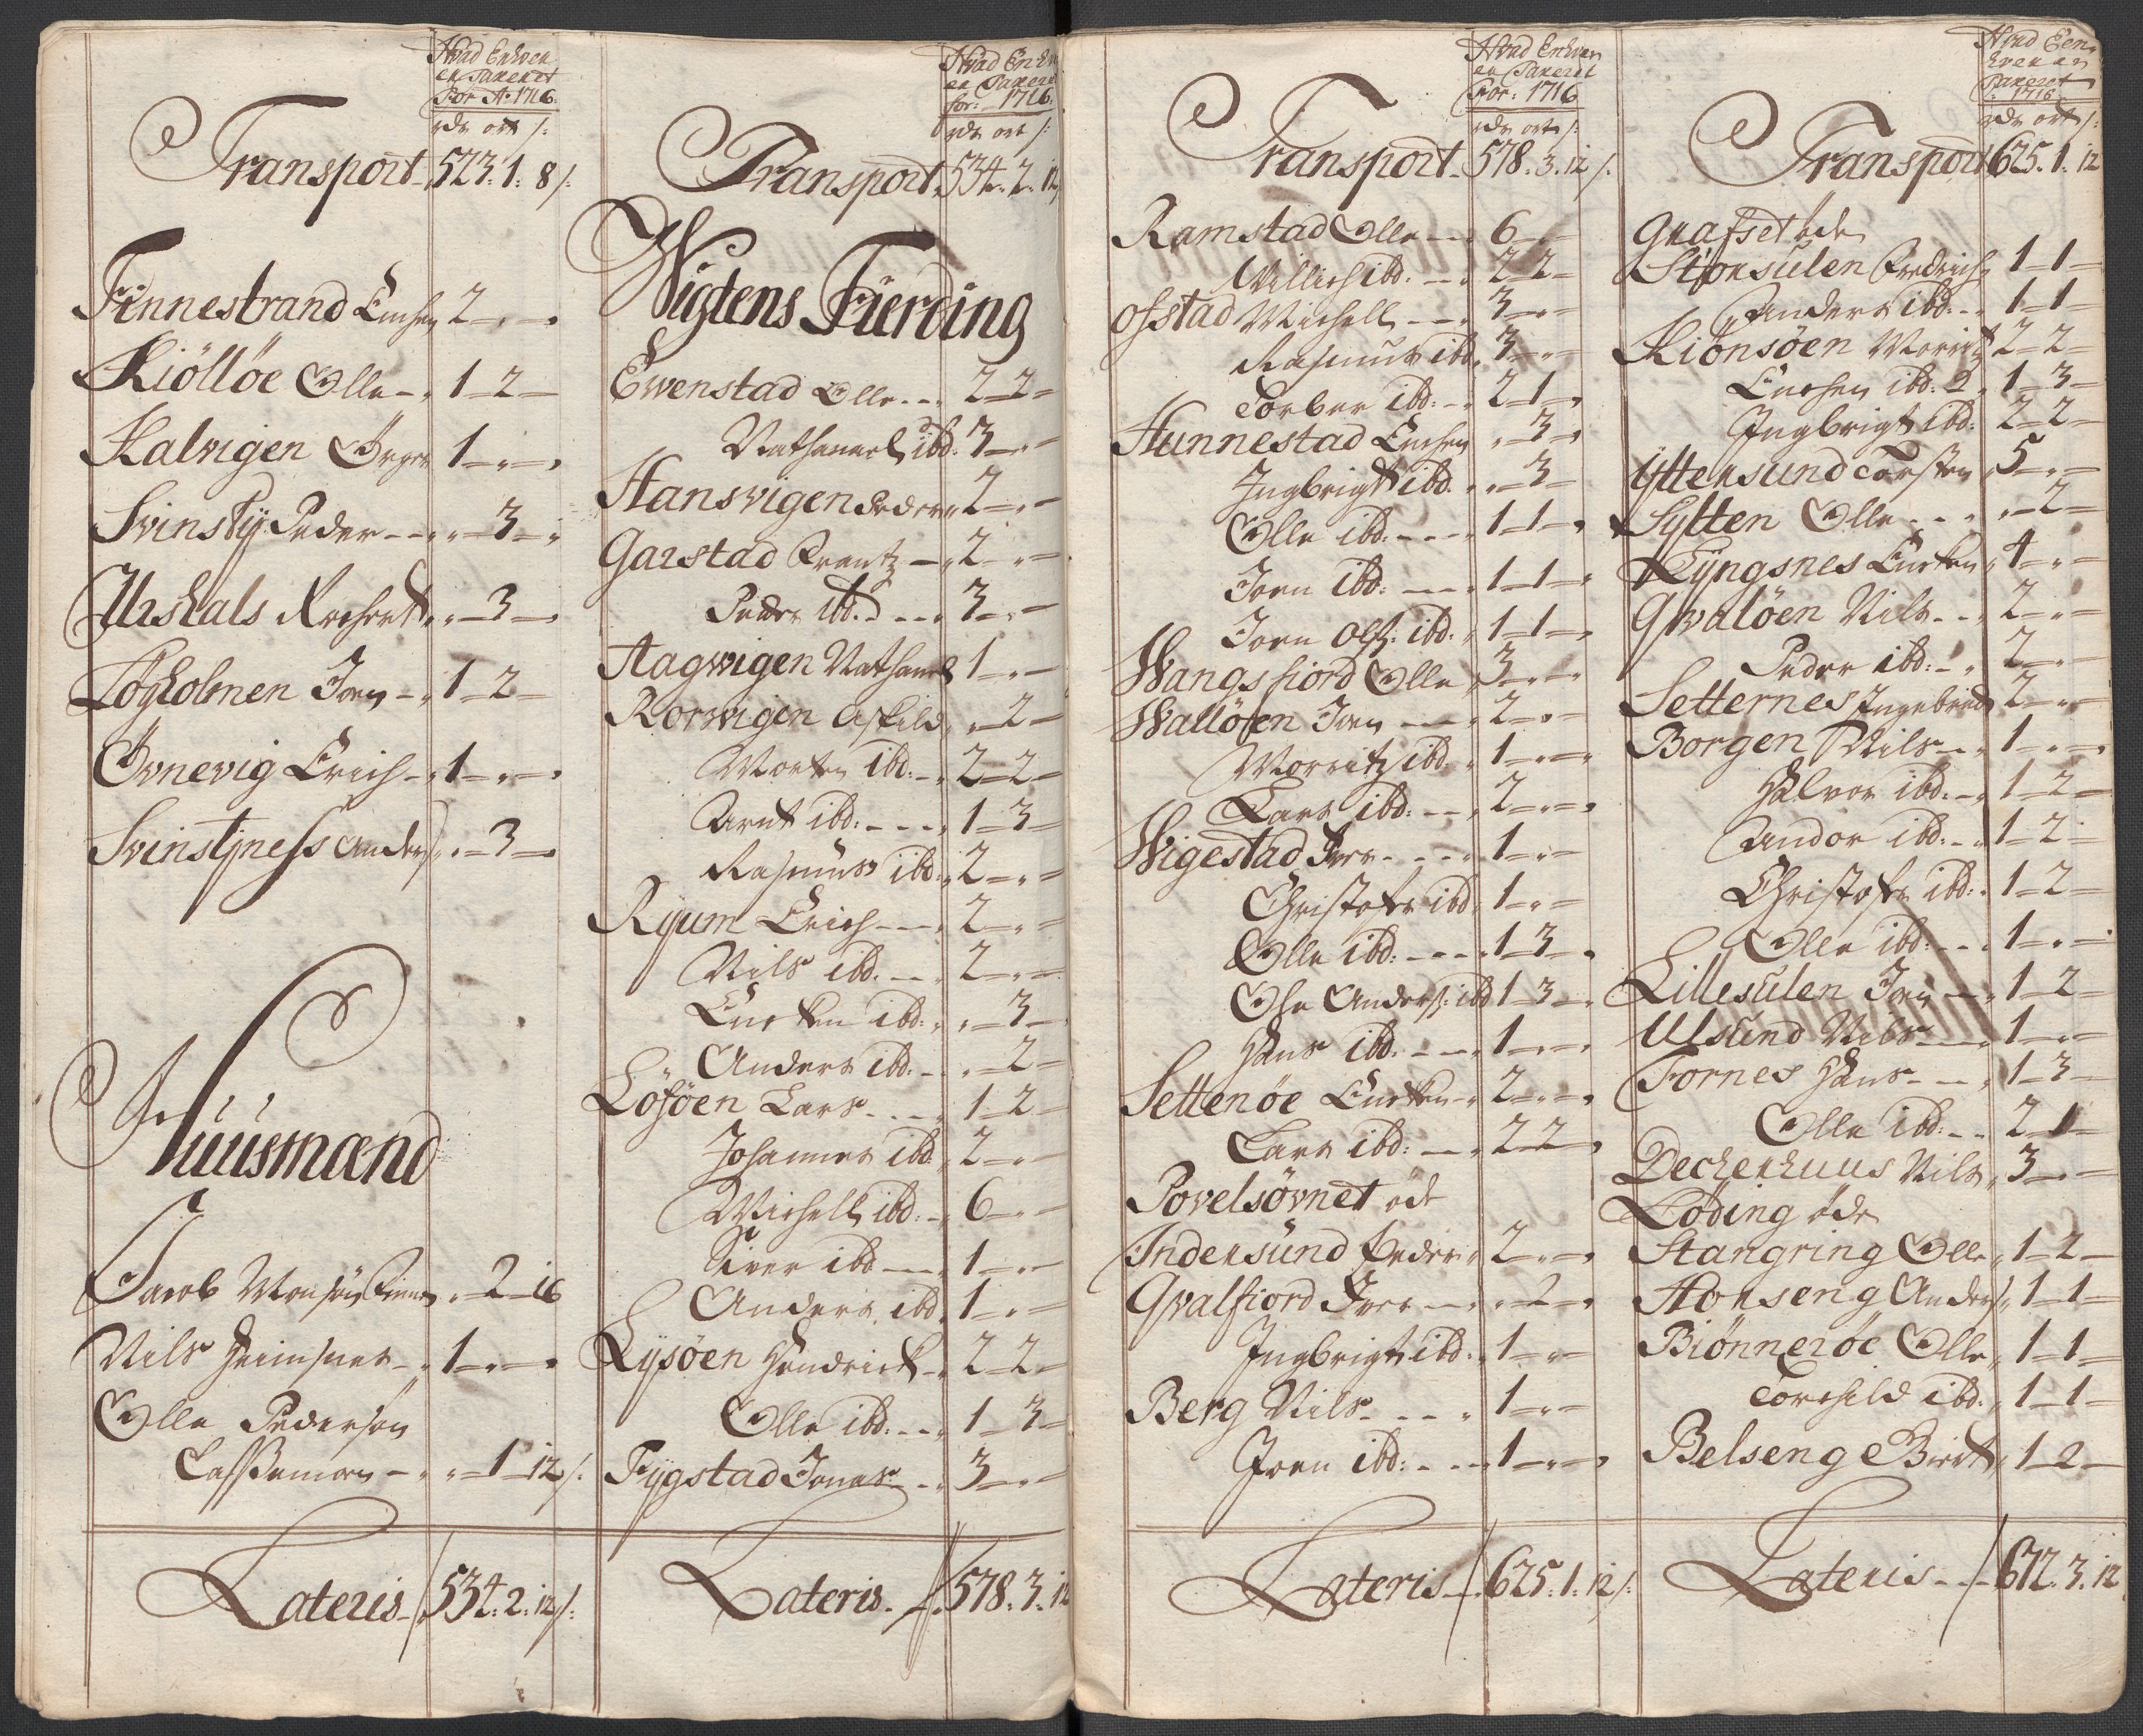 Hvad Enhver
er Taxeret
For Ao 1716.
rdr ort /:
Transport 523: 1: 8 /:
Finnestrand 2 - " - "
Kiölöe Olle - " 1 - 2 -
Kalvigen 1 - " - "
Svinsty Peder - - " - 3 - "
Urskals " - 3 - "
Fogholmen Joen - " 1 - 2 -
Övnevig Erich - " 1 - " - "
Svinstyness Anders " - 3 - "
Huusmænd
Jacob Finne " - 2 - 16
Nils - " 1 - " - "
Olle Pedersön
- " - 1 - 12 /:
Lateris - 534: 2: 12 /:
Hvad Enhver
er Taxeret
for: 1716.
rdr ort /:
Transport 534: 2: 12
Wigtens Fierding
Evenstad Olle - - 2 - 2 -
Nathanael ibd: 3 - " -
Hansvigen Peder 2 - " -
Garstad Frantz - 2 - " -
Peder ibd: - - 3 - " -
Aagwigen Nathanael 1 - " -
Rorwigen Asfild " - 2 -
Morten ibd: - 2 - 2 -
Arnt ibd: - - - 1 - 3 -
Rasmus ibd: 2 - " -
Ryum Erich - - - 2 - " -
Nils ibd: - - 2 - " -
ibd: " - 3 -
Anders ibd: - " - 2 -
Löföen Lars - - - 1 - 2 -
Johannes ibd 2 - " -
Michell ibd: - 6 - " -
Siver ibd - - - 1 - " -
Anders ibd 1 - " -
Lysöen Hendrick - 2 - 2 -
Olle ibd: - - 1 - 3 -
Fygstad Jonas - - 3 - " -
Lateris - 578: 3: 12
Hvad Enhver
er Taxeret
For: 1716
rdr ort /:
Transport - 578. 3. 12 /:
Ramstad Olle - - 6 - " -
ibd: - - 2 - 2 -
Ofstad Michell - - - 3 - " -
Rasmus ibd. 3 - " -
Torber ibd: - 2 - 1 - "
Hunnestad " - 3 - "
Ingbrigt ibd. " - 3 -
Olle ibd: - - - - 1 - 1 - "
Joen ibd: - - - 1 - 1 - "
Joen Ols: ibd: 1 - 1 - "
Wangsfiord Olle 3 - " -
Wallöen Joen - - - 2 - " -
Morritz ibd: 1 - " - "
Lars ibd: - - 2 - " - "
Wigestad Iver - - - - 1 - " -
Christofer ibd 1 - " -
Olle ibd: - - - - 1 - 3 - "
Ole Anders: ibd 1 - 3 - "
Hans ibd: - - - 1 - " - "
Settenöe 2 - " - "
Lars ibd: - - 2 - 2 - "
Povelsövnet öde
Indersund Peder 2 - " - "
Qvalfiord Iver - - " - 2 - "
Ingbrigt ibd: 1 - " -
Berg Nils - - - " 1 - " -
Joen ibd: - - - 1 - " - "
Lateris - 625: 1: 12 /:
Hvad Een-
hver er
Taxeret
1716
rdr ort /:
Transport 625. 1. 12
Grafset öde
Storsulen Fredrich 1 - 1 -
Anders ibd: - - 1 - 1 -
Kiönsöen Morritz 2 - 2 -
ibd: 2 1 - 3 -
Ingbrigt ibd: 2 - 2 -
Yttersund Torsten 5 - " -
Sylten Olle - - - " - 2 -
Kyngsnes 4 - " -
Qvalöen Nils - - 2 - " -
Peder ibd: - " 2 - " -
Setternes Ingebrict 2 - " -
Borgen Nils - - 1 - " - "
Halvor ibd: - 1 - 2 -
Andor ibd: - 1 - 2 -
Christofer ibd: - 1 - 2 -
Olle ibd: - - - 1 - " - "
Lillesulen Joen - 1 - 2 -
Ulsund Nils - - - 1 - " -
Fornes Hans - - - 1 - 3 -
Olle ibd: - - 2 - 1 -
Deckerhuus Nils 3 - " -
Löding öde
Stangring Olle 1 - 2 -
Horseng Anders 1 - 1 -
Biönneröe Olle 1 - 1 -
Torchild ibd: 1 - 1 -
Belseng 1 - 2 -
Lateris - - 672. 3. 12